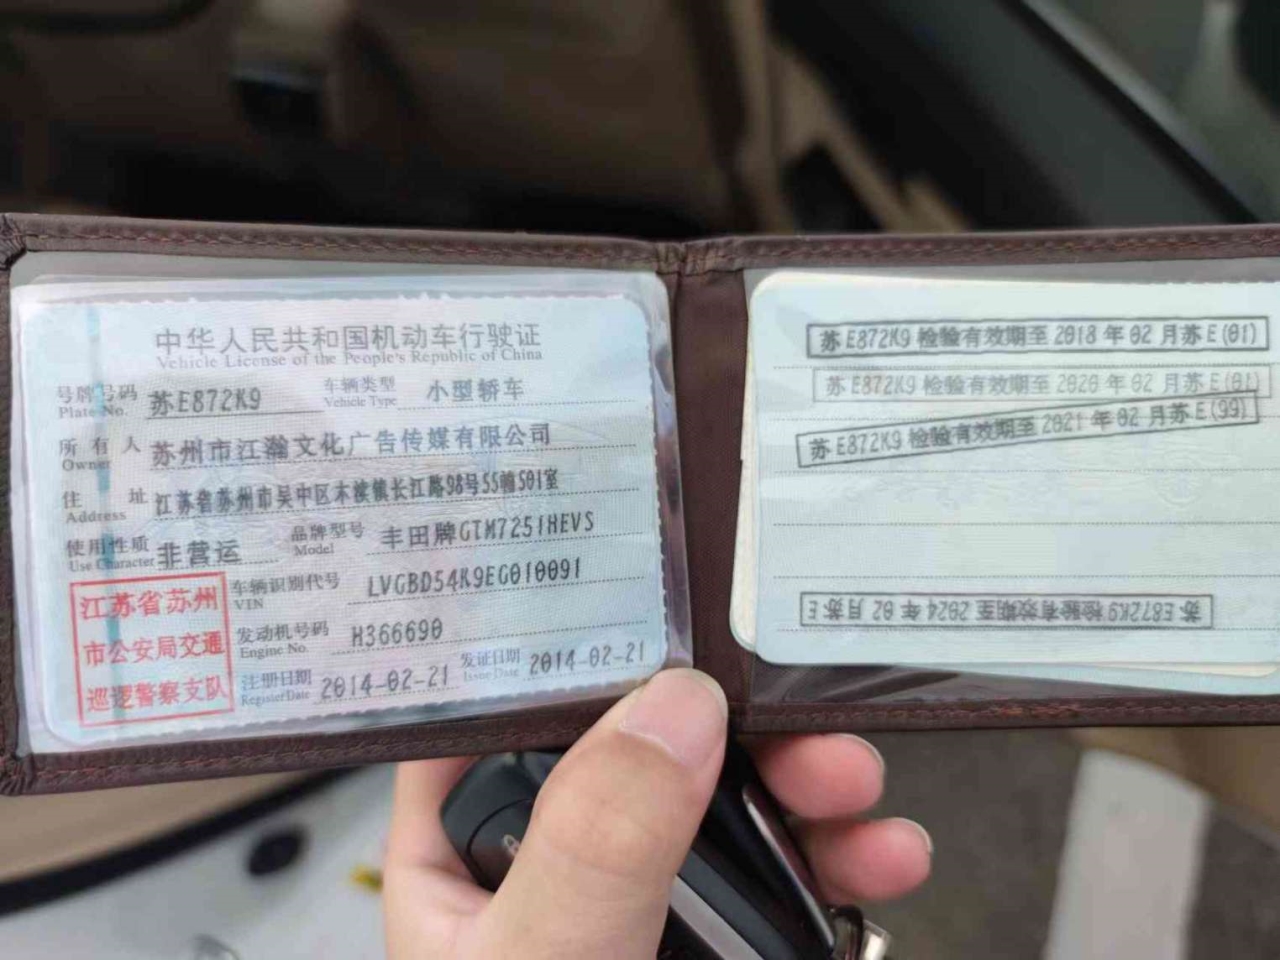 中华人民共和国机动车行驶证
Vehicle License of the People's Republic of China
号牌号码 苏E872K9 车辆类型 小型轿车
Plate No. Vehicle Type
所有人 苏州市江瀚文化广告传媒有限公司
Owner
住址 江苏省苏州市吴中区木渎镇长江路98号55幢501室
Address
使用性质 非营运 品牌型号 丰田牌GTM7251HEVS
Use Character Model
车辆识别代号 LVGBD54K9EG010091
VIN
发动机号码 H366690
Engine No.
注册日期 2014-02-21 发证日期 2014-02-21
Register Date Issue Date
江苏省苏州
市公安局交通
巡逻警察支队
苏E872K9 检验有效期至 2018 年 02 月苏E(01)
苏E872K9 检验有效期至 2020 年 02 月苏E(01)
苏E872K9 检验有效期至 2021 年 02 月苏E(99)
苏E872K9 检验有效期至 2024 年 02 月苏E